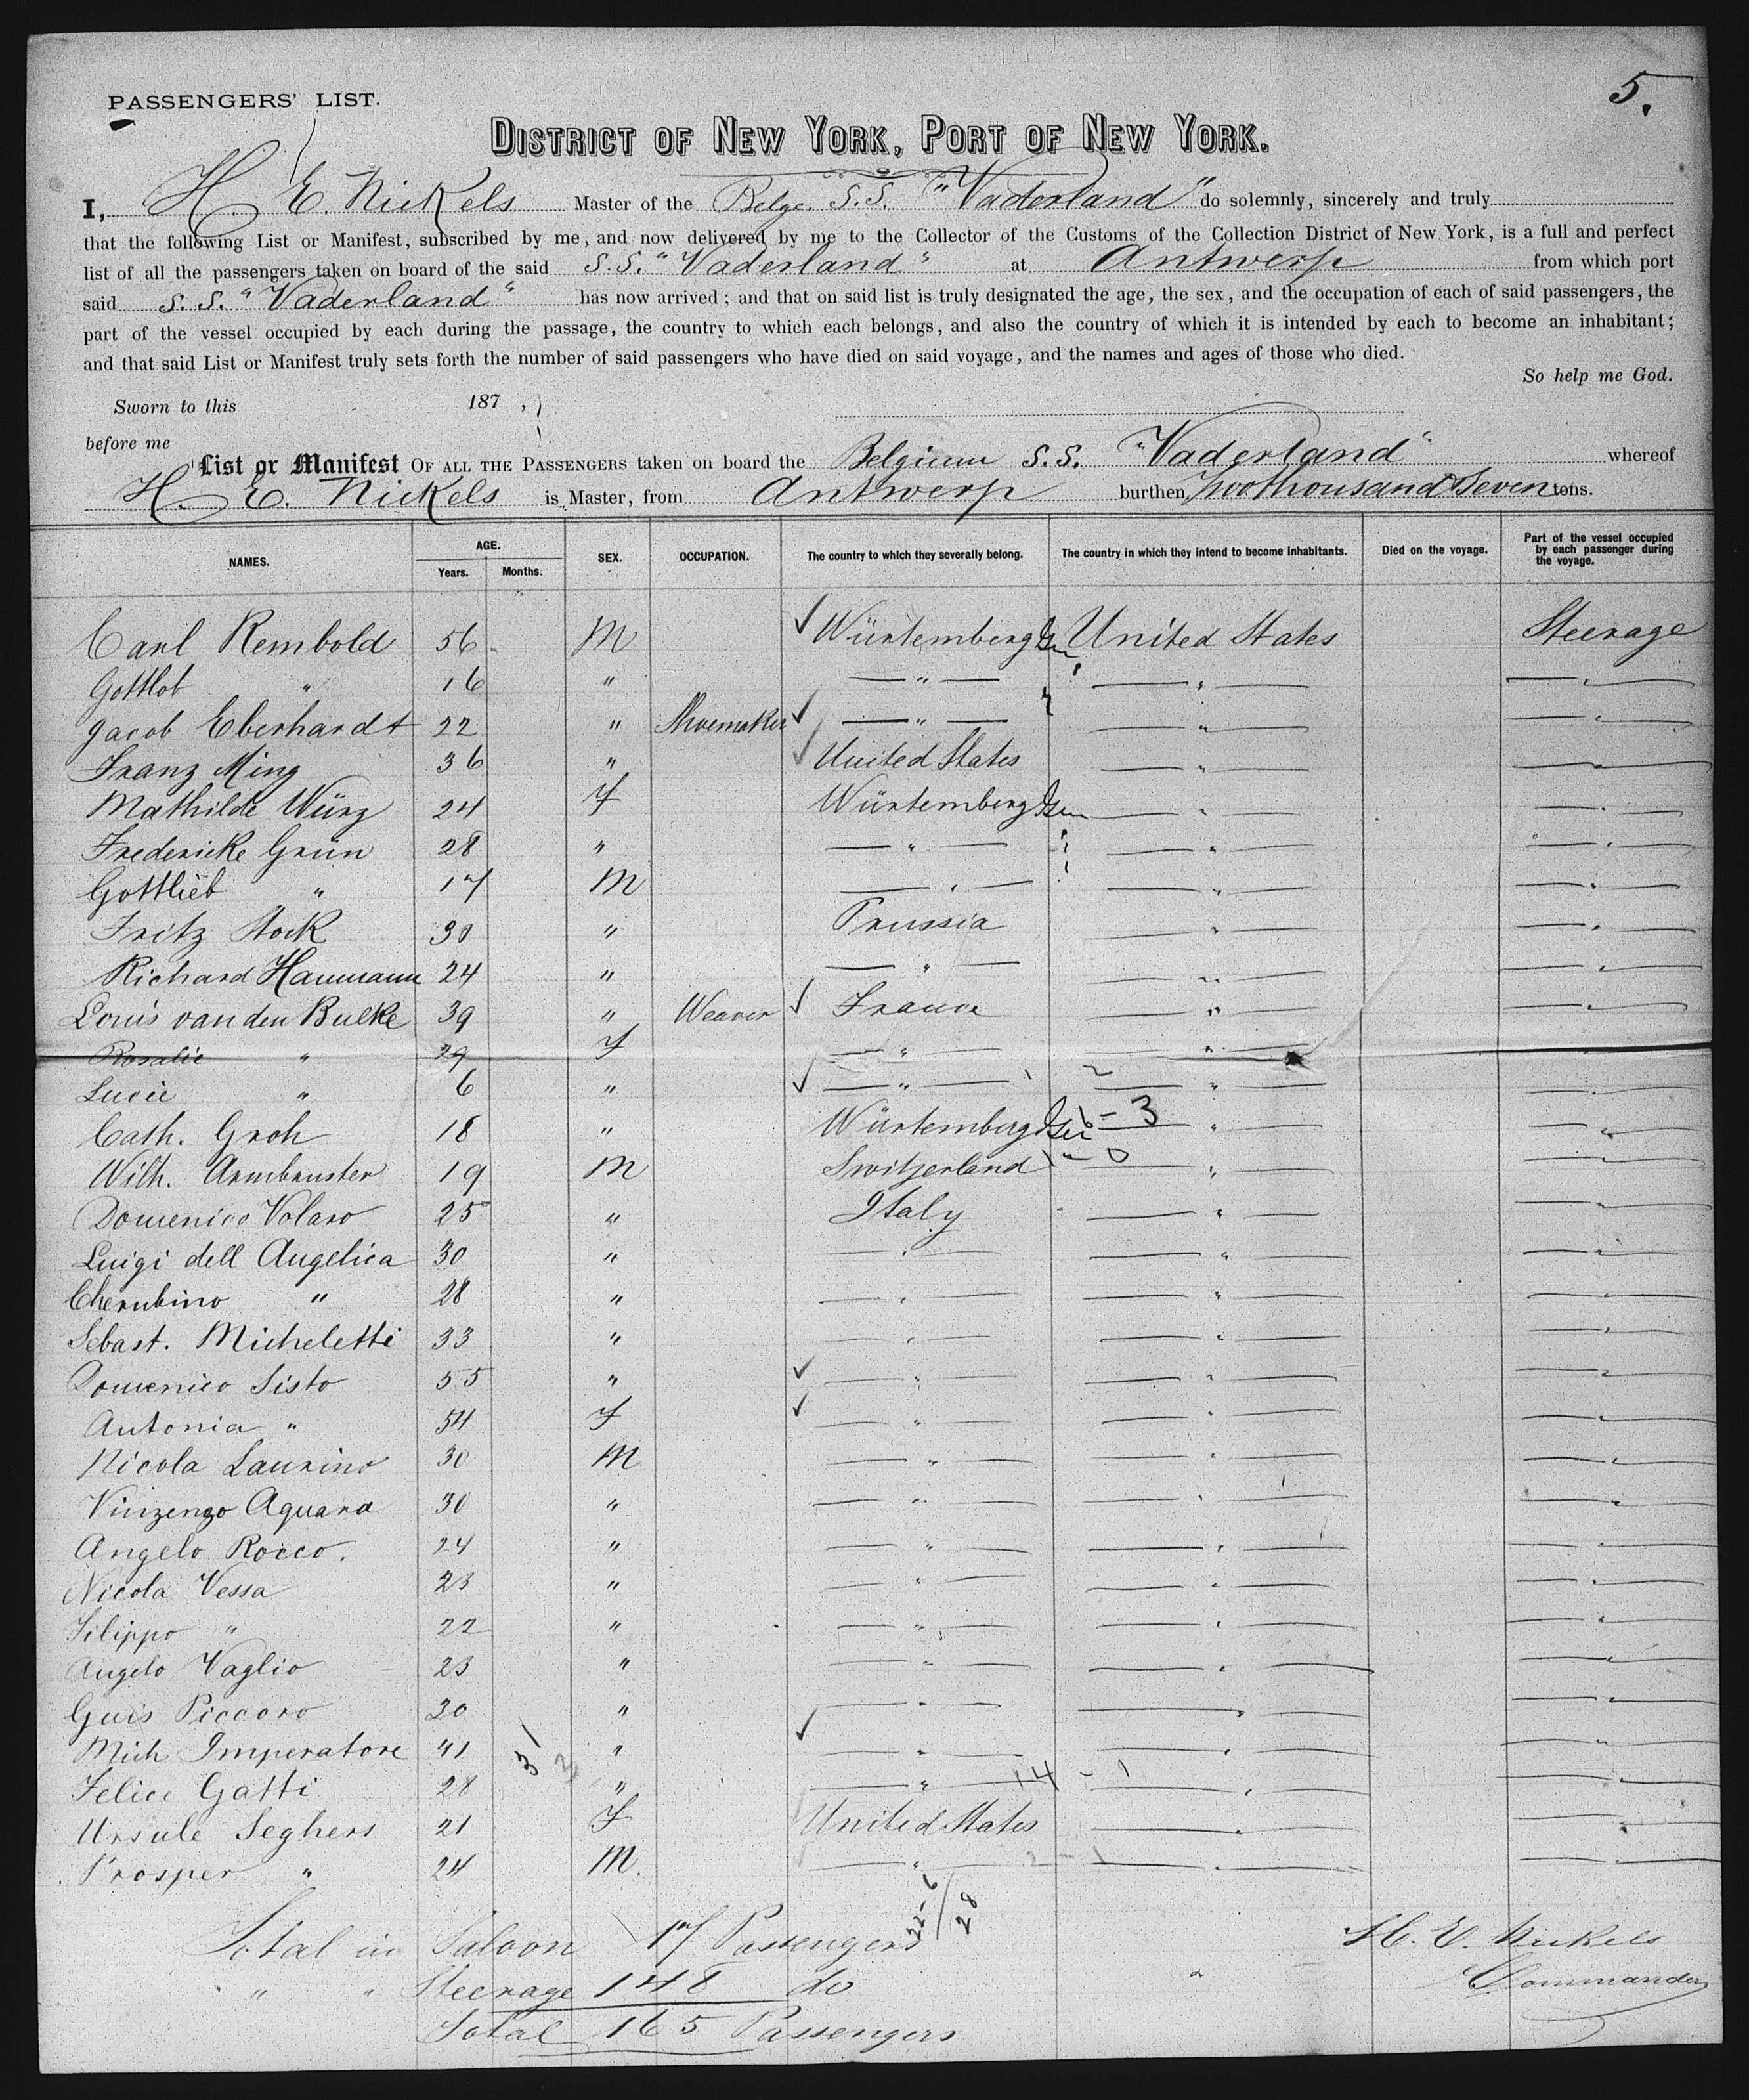 PASSENGERS' LIST.
5.
DISTRICT OF NEW YORK, PORT OF NEW YORK.
I, H. E. Nickels Master of the Belge. S.S. "Vaderland" do solemnly, sincerely and truly
that the following List or Manifest, subscribed by me, and now delivered by me to the Collector of the Customs of the Collection District of New York, is a full and perfect
list of all the passengers taken on board of the said S.S. "Vaderland" at Antwerp from which port
said S.S. "Vaderland" has now arrived; and that on said list is truly designated the age, the sex, and the occupation of each of said passengers, the
part of the vessel occupied by each during the passage, the country to which each belongs, and also the country of which it is intended by each to become an inhabitant;
and that said List or Manifest truly sets forth the number of said passengers who have died on said voyage, and the names and ages of those who died.
So help me God.
Sworn to this 187 ,
before me
List or Manifest OF ALL THE PASSENGERS taken on board the Belgium S.S. "Vaderland" whereof
H. E. Nickels is Master, from Antwerp burthen twothousand & seven tons.
NAMES. AGE. Years. Months. SEX. OCCUPATION. The country to which they severally belong. The country in which they intend to become inhabitants. Died on the voyage. Part of the vessel occupied by each passenger during the voyage.
Carl Rembold 56 M Würtemberg United States Steerage
Gottlob " 16 " " " "
Jacob Eberhardt 22 " Shoemaker " " "
Franz Ming 36 " United States " "
Mathilde Würz 24 F Würtemberg " "
Fredericke Grün 28 " " " "
Gottlieb " 17 M " " "
Fritz Stock 30 " Prussia " "
Richard Haumann 24 " " " "
Louis van den Bulke 39 " Weaver France " "
Rosalie " 29 F " "
Lucie " 6 " " " "
Cath. Groh 18 " Würtemberg 1-3 " "
Wilh. Armbruster 19 M Switzerland 1-0 " "
Domenico Volaro 25 " Italy " "
Luigi dell Angelica 30 " " " "
Cherubino " 28 " " " "
Sebast. Micheletti 33 " " " "
Domenico Sisto 55 " " " "
Antonia " 54 F " " "
Nicola Laurino 30 M " " "
Vinzenzo Aquara 30 " " " "
Angelo Rocco. 24 " " " "
Nicola Vessa 23 " " " "
Filippo " 22 " " " "
Angelo Vaglio 23 " " " "
Guis Piccoro 20 " " " "
Mich Imperatore 41 " " " "
Felice Gatti 28 " " 14 - 1 " "
Ursule Seghers 21 F United States " "
Prosper " 24 M. " 2 - 1 " "
Total in Saloon 17 Passengers
" " Steerage 148 do
Total 165 Passengers
H. E. Nickels
Commander